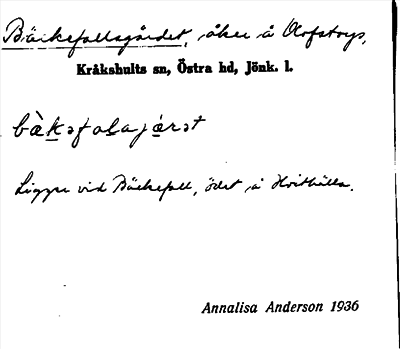 Bäckefallsgärdet, åker å Olofstorp,
Kråkshults sn, Östra hd, Jönk. l.
bàkəfaḷajárət
Ligger vid Bäckefall, ödet å Hvithälla.
Annalisa Anderson 1936